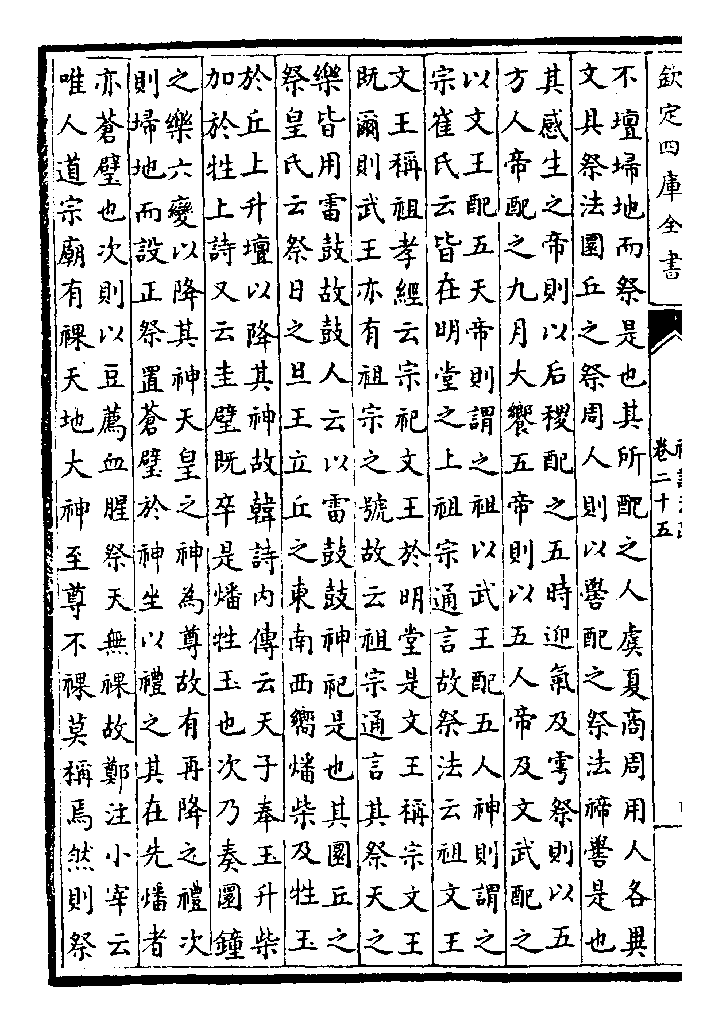 欽定四庫全書
卷二十五
不壇埽地而祭是也其所配之人虞夏商周用人各異
文具祭法圜丘之祭周人則以嚳配之祭法禘嚳是也
其感生之帝則以后稷配之五時迎氣及雩祭則以五
方人帝配之九月大饗五帝則以五人帝及文武配之
以文王配五天帝則謂之祖以武王配五人神則謂之
宗崔氏云皆在明堂之上祖宗通言故祭法云祖文王
文王稱祖孝經云宗祀文王於明堂是文王稱宗文王
既爾則武王亦有祖宗之號故云祖宗通言其祭天之
樂皆用雷鼓故鼓人云以雷鼓鼓神祀是也其圜丘之
祭皇氏云祭日之旦王立丘之東南西嚮燔柴及牲玉
於丘上升壇以降其神故韓詩內傳云天子奉玉升柴
加於牲上詩又云圭璧既卒是燔牲玉也次乃奏圜鐘
之樂六變以降其神天皇之神為尊故有再降之禮次
則埽地而設正祭置蒼璧於神坐以禮之其在先燔者
亦蒼璧也次則以豆薦血腥祭天無祼故鄭注小宰云
唯人道宗廟有祼天地大神至尊不祼莫稱焉然則祭